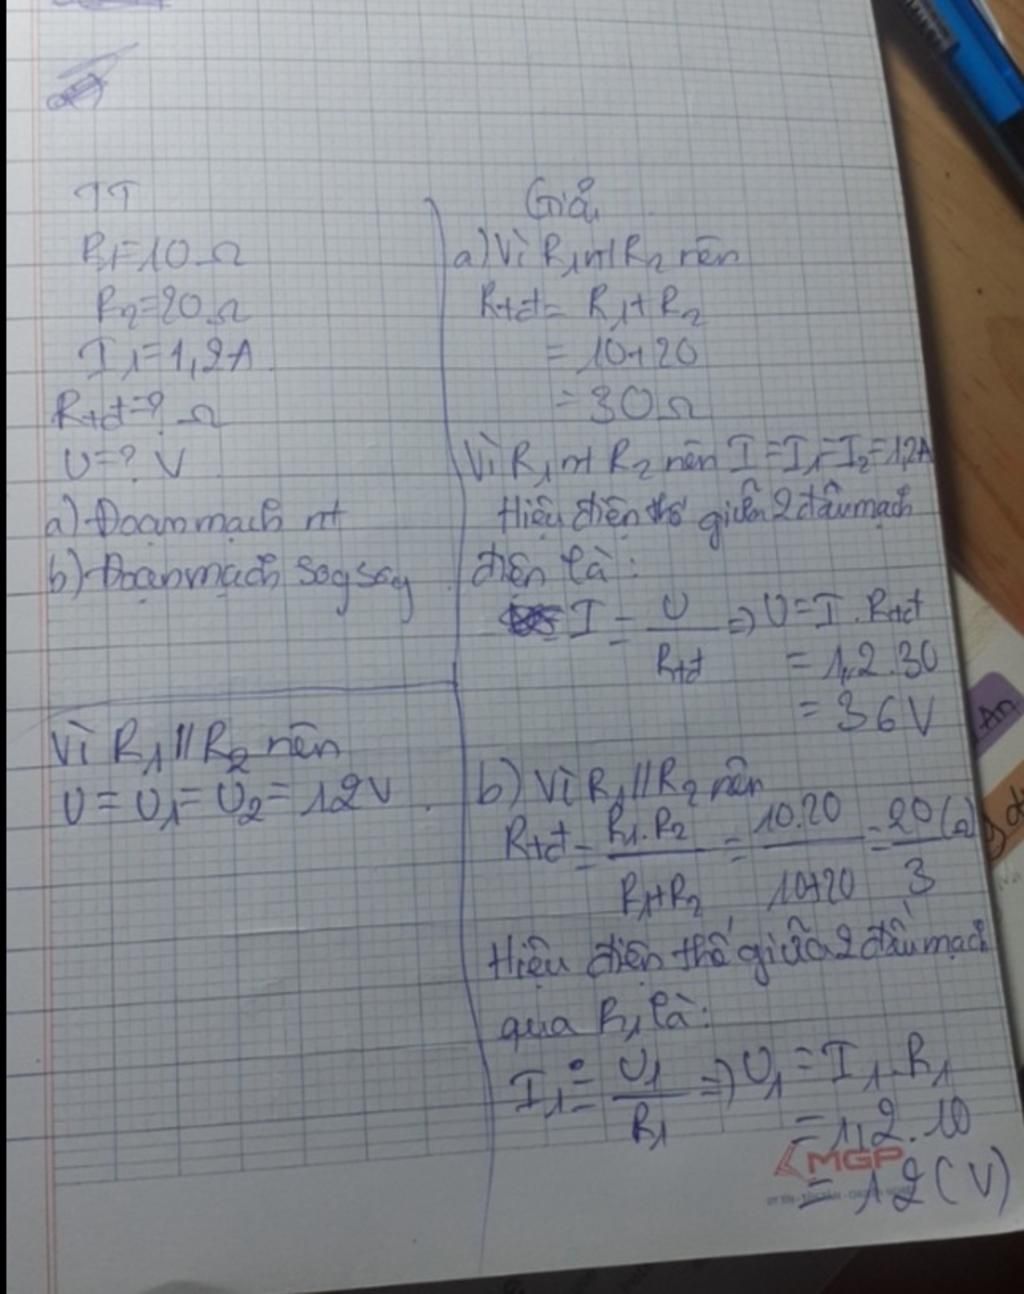 TT
R1=10Ω
R2=20Ω
I1=1,2A
Rtđ=? Ω
U=? V
a) Đoạn mạch nt
b) Đoạn mạch sog sog
Giải
a) Vì R1 nt R2 nên
Rtđ = R1+R2
= 10+20
= 30Ω
Vì R1 nt R2 nên I=I1=I2=1,2A
Hiệu điện thế giữa 2 đầu mạch
điện là:
I = U/Rtđ => U = I.Rtđ
= 1,2.30
= 36V
b) Vì R1//R2 nên
Rtđ = R1.R2/R1+R2 = 10.20/10+20 = 20/3 (Ω)
Hiệu điện thế giữa 2 đầu mạch
qua R1 là:
I1 = U1/R1 => U1 = I1.R1
= 1,2.10
= 12(V)
Vì R1//R2 nên
U = U1 = U2 = 12V
MGP
An